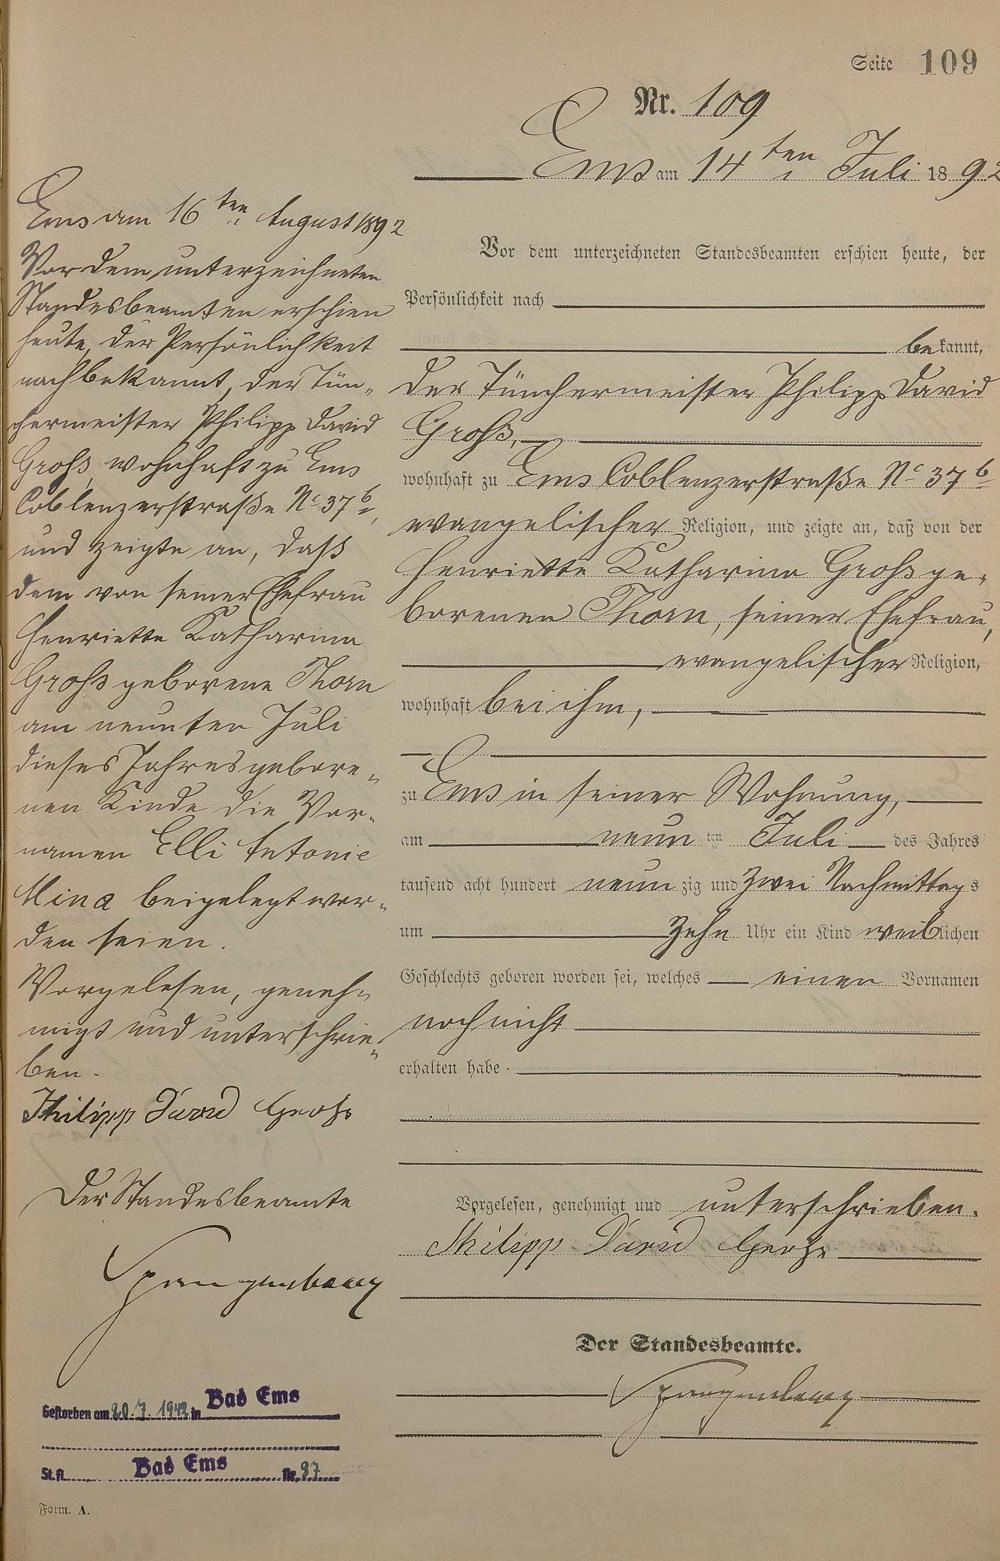 Seite 109
Nr. 109
Ems am 14ten Juli 1892
Vor dem unterzeichneten Standesbeamten erschien heute, der
Persönlichkeit nach
bekannt,
der Tünchermeister Philipp David
Groß,
wohnhaft zu Ems Coblenzerstraße No 37b
evangelischer Religion, und zeigte an, daß von der
Henriette Katharina Groß ge-
borenen Thorn, seiner Ehefrau,
evangelischer Religion,
wohnhaft bei ihm,
zu Ems in seiner Wohnung,
am neunten Juli des Jahres
tausend acht hundert neunzig und zwei Nachmittags
um zehn Uhr ein Kind weiblichen
Geschlechts geboren worden sei, welches einen Vornamen
noch nicht
erhalten habe.
Vorgelesen, genehmigt und unterschrieben.
Philipp David Groß
Der Standesbeamte.
Spangenberg
Ems am 16ten August 1892
Vor dem unterzeichneten
Standesbeamten erschien
heute, der Persönlichkeit
nach bekannt, der Tün-
chermeister Philipp David
Groß, wohnhaft zu Ems
Coblenzerstraße No 37b,
und zeigte an, daß
dem von seiner Ehefrau
Henriette Katharina
Groß geborene Thorn
am neunten Juli
dieses Jahres gebore-
nen Kinde die Vor-
namen Elli Antonie
Mina beigelegt wor-
den seien.
Vorgelesen, geneh-
migt und unterschrie-
ben.
Philipp David Groß
Der Standesbeamte
Spangenberg
Gestorben am 20.7.1942 in Bad Ems
St.A. Bad Ems Nr. 97
Form. A.